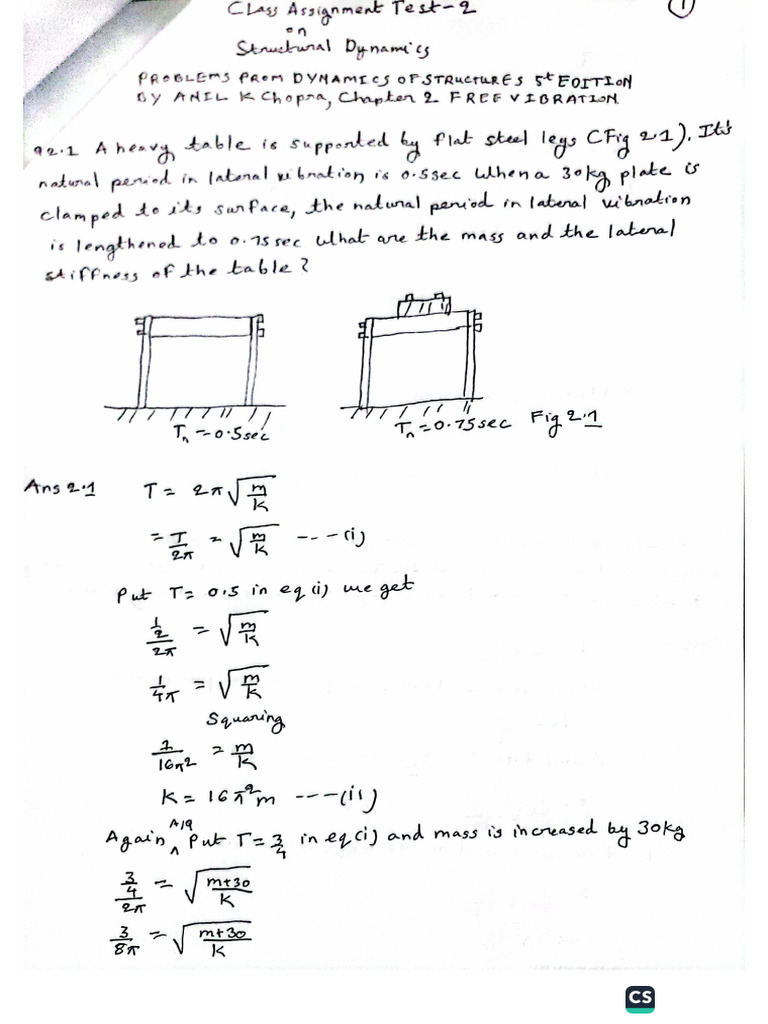 1
Class Assignment Test-2
on
Structural Dynamics
PROBLEMS FROM DYNAMICS OF STRUCTURES 5t EDITION
BY ANIL K Chopra, Chapter 2 FREE VIBRATION
Q2.1 A heavy table is supported by flat steel legs (Fig 2.1). It's
natural period in lateral vibration is 0.5sec When a 30kg plate is
clamped to its surface, the natural period in lateral vibration
is lengthened to 0.75sec What are the mass and the lateral
stiffness of the table?
Tn = 0.5sec
Tn = 0.75sec Fig 2.1
Ans 2.1 T = 2π√(m/K)
= T/2π = √(m/K) ---(i)
Put T = 0.5 in eq (i) we get
(1/2)/2π = √(m/K)
1/4π = √(m/K)
Squaring
1/16π² = m/K
K = 16π²m ---(ii)
Again A/q Put T = 3/4 in eq(i) and mass is increased by 30kg
(3/4)/2π = √((m+30)/K)
3/8π = √((m+30)/K)
CS